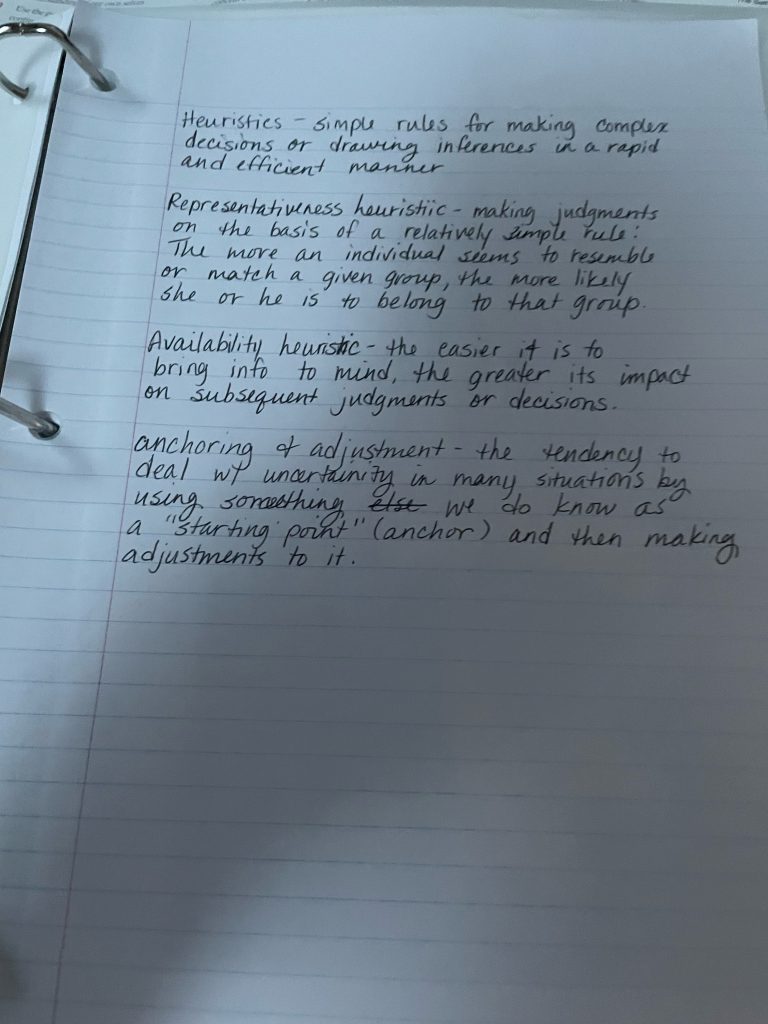 Heuristics - simple rules for making complex
decisions or drawing inferences in a rapid
and efficient manner
Representativeness heuristiic - making judgments
on the basis of a relatively simple rule:
The more an individual seems to resemble
or match a given group, the more likely
she or he is to belong to that group.
Availability heuristic - the easier it is to
bring info to mind, the greater its impact
on subsequent judgments or decisions.
anchoring & adjustment - the tendency to
deal w/ uncertainity in many situations by
using something else we do know as
a "starting point" (anchor) and then making
adjustments to it.